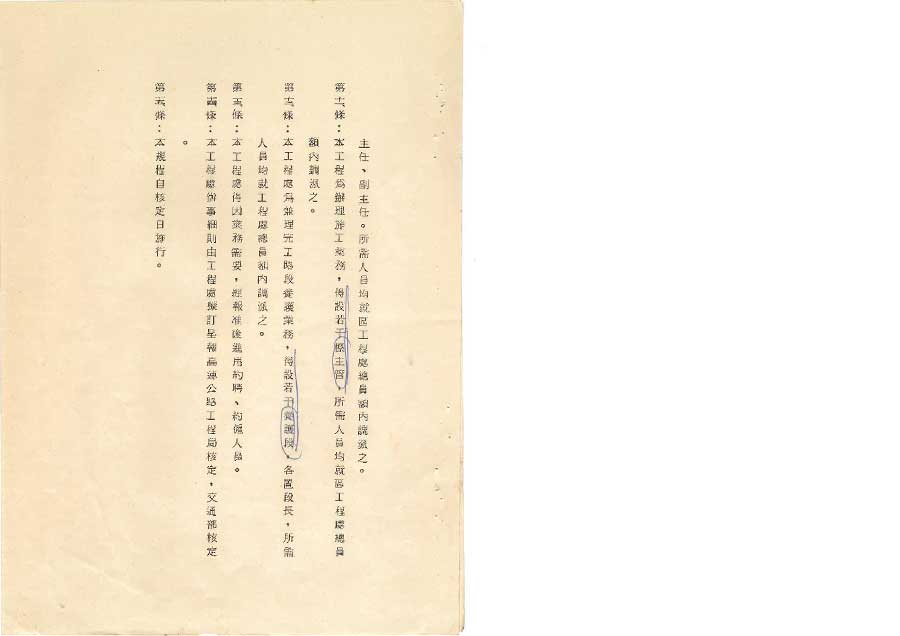 主任、副主任。所需人員均就區工程處總員額內調派之。
第十一條：本工程為辦理施工業務，得設若干標主管，所需人員均就區工程處總員
額內調派之。
第十二條：本工程處為兼理完工路段養護業務，得設若干養護段，各置段長，所需
人員均就工程處總員額內調派之。
第十三條：本工程處得因業務需要，經報准後進用約聘、約僱人員。
第十四條：本工程處辦事細則由工程處擬訂呈報高速公路工程局核定，交通部核定
。
第十五條：本規程自核定日施行。